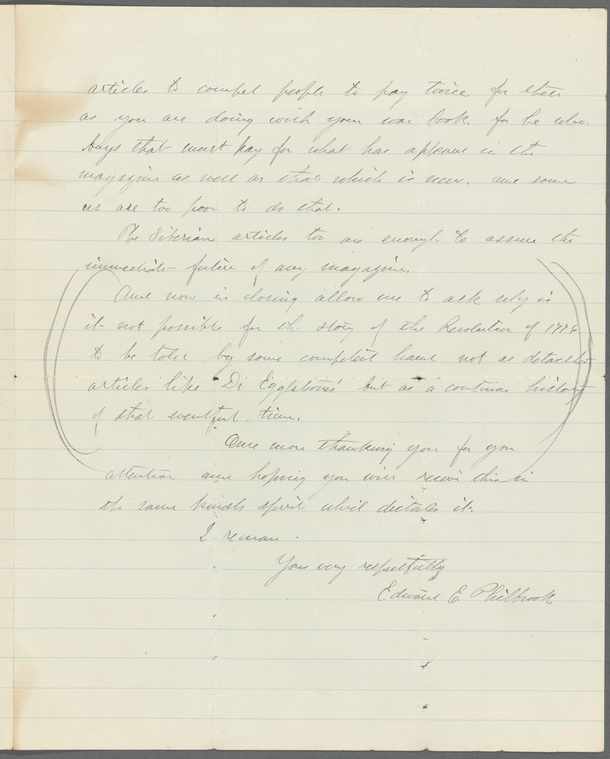 articles to compel people to pay twice for them
as you are doing with your war book. for he who
buys that must pay for what has appeared in the
magazine as well as that which is new. and some
us are too poor to do that.
The Siberian articles too are enough to assure the
immediate future of any magazine.
And now in closing allow me to ask why is
it not possible for the story of the Revolution of 1776
to be told by some competent hand not as detached
articles like Dr Eggleston's but as a continus history
of that eventful time.
Once more thanking you for your
attention and hoping you will receive this in
the same kindly spirit which dictates it.
I remain.
Yours very respectfully
Edward E Philbrook